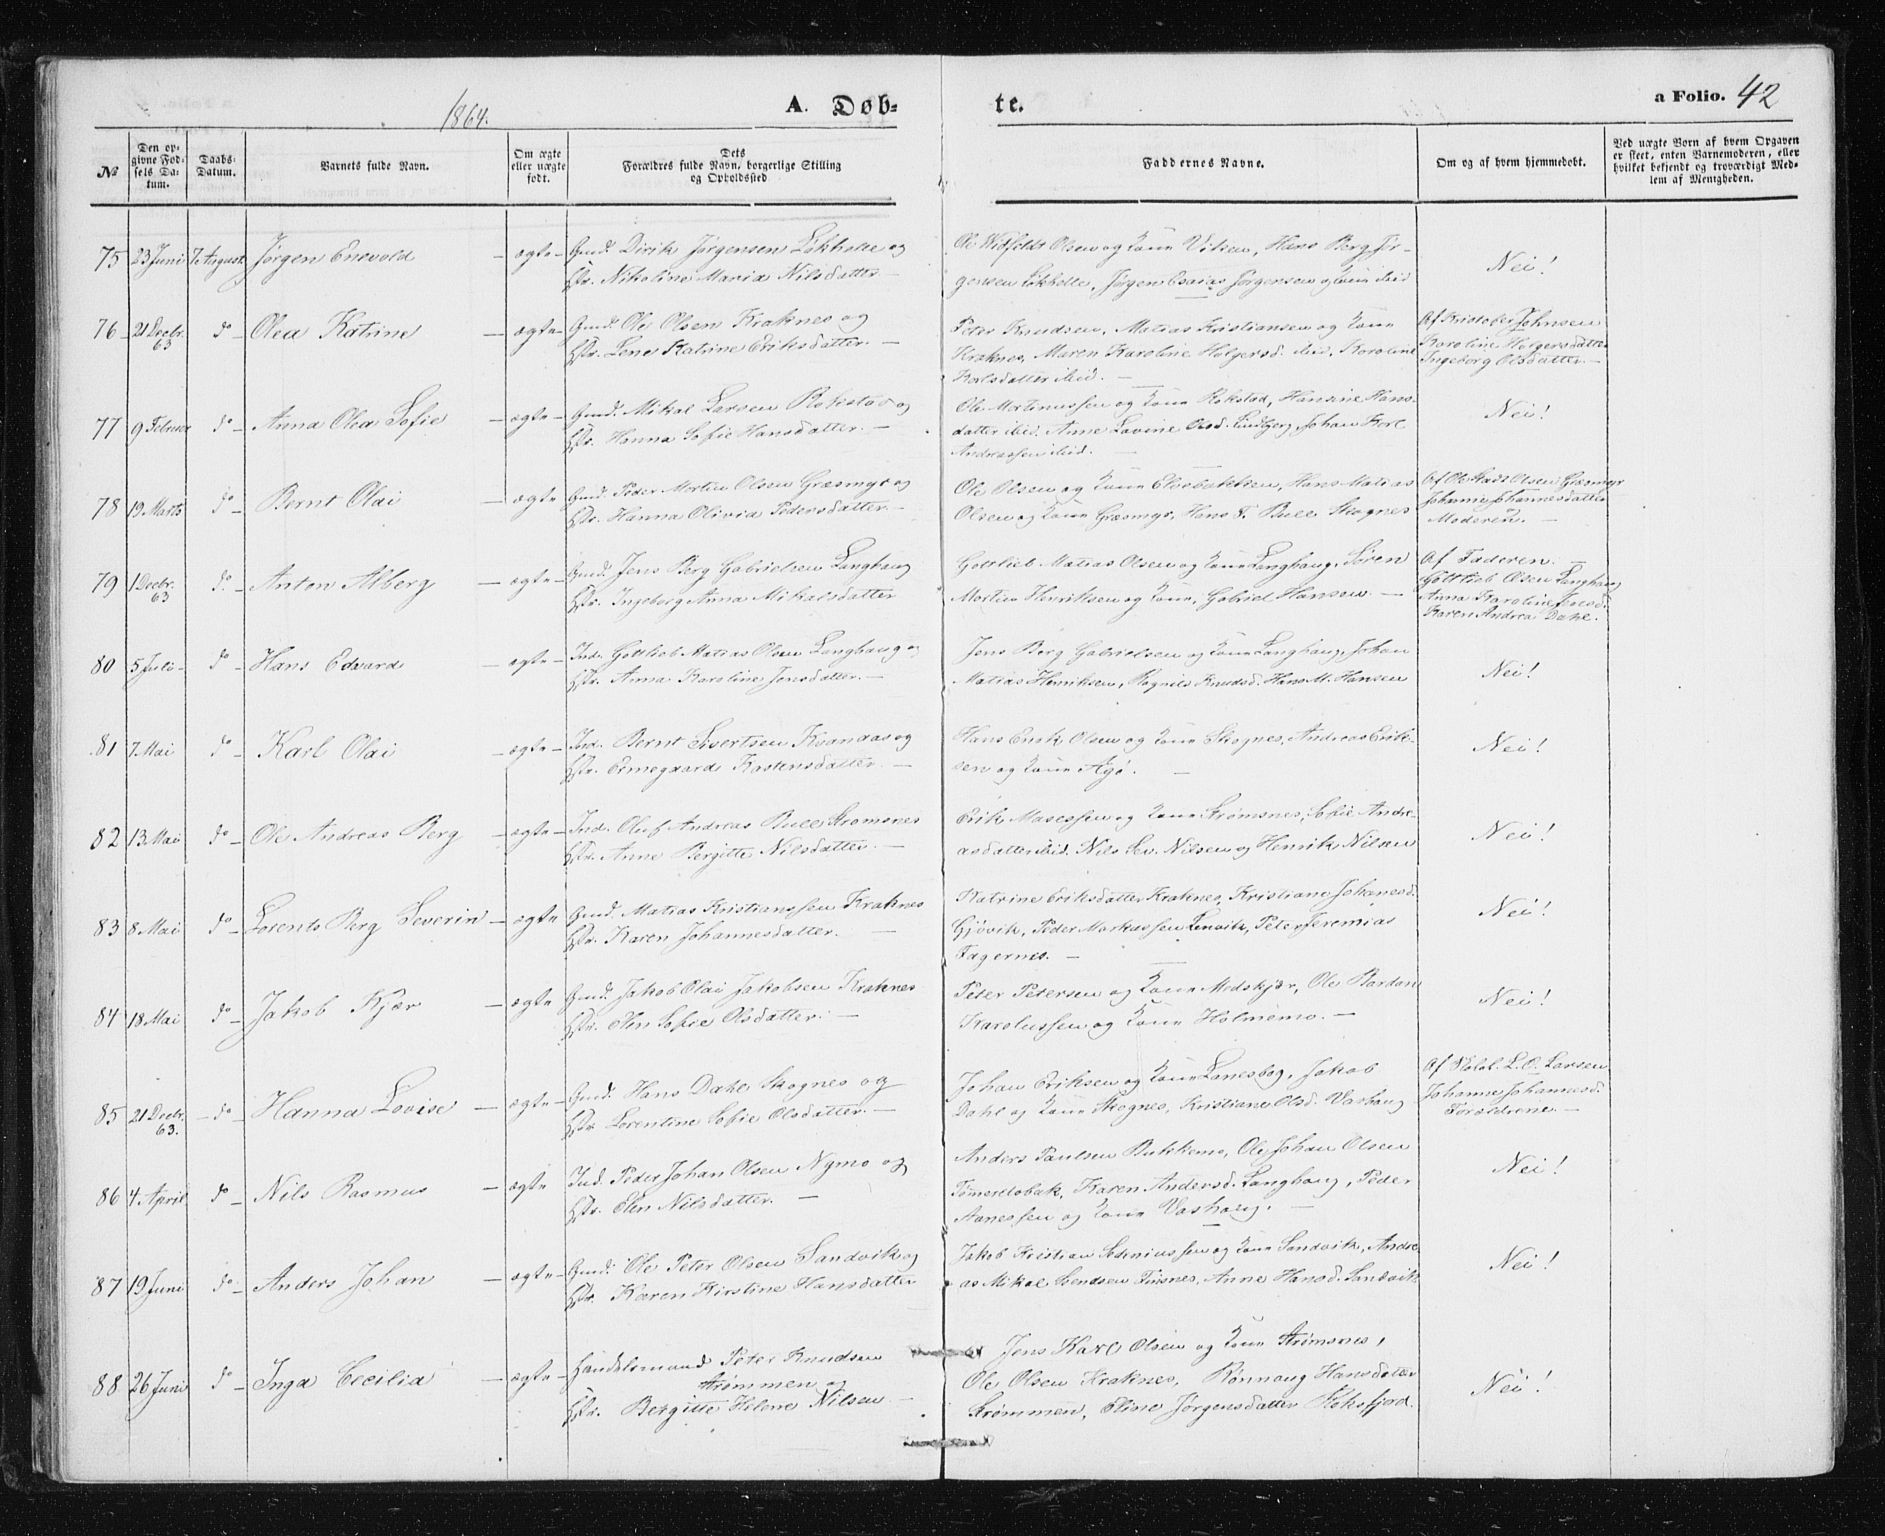 1864.
A. Døb-
te.
a Folio. 42
№
Den op-
givne Fød-
sels Da-
tum.
Daabs-
Datum.
Barnets fulde Navn.
Om ægte
eller uægte
født.
Dets
Forældres fulde Navn, borgerlige Stilling
og Opholdssted
Faddernes Navne.
Om og af hvem hjemmedøbt.
Ved uægte Børn af hvem Opgaven
er skeet, enten Barnemoderen, eller
hvilket bekjendt og troværdigt Med-
lem af Menigheden.
75 23 Juni 7 August Jørgen Enevold - ægte - Gmd. Dirik Jørgensen Løkhelle og
Hstr. Nikoline Maria Nilsdatter -
Ole Widfeldt Olsen og Kone Viken, Hans Berg Jør-
gensen Løkhelle, Jørgen Esaias Jørgensen og Kone ibid
Nei!
76 21 Decbr. 63 do - Olea Katrine - ægte - Gmd. Ole Olsen Kraknes og
Hstr. Lene Katrine Eriksdatter. -
Peter Knudsen, Matias Kristiansen og Kone
Kraknes, Maren Karoline Holgersd. ibid, Karoline
Karlsdatter ibid. -
Af Kristofer Johnsen
Karoline Holgersdatter
Ingeborg Olsdatter. -
77 9 Februar do - Anna Olea Sofie - ægte - Gmd. Mikal Larsen Rokstad og
Hstr. Hanna Sofie Hansdatter. -
Ole Mortinussen og Kone Rokstad, Hansine Hans-
datter ibid. Anne Lovine Olsd. Lindberg, Johan Karl
Andreassen ibid. -
Nei!
78 19 Marts do - Bernt Olai - ægte - Gmd. Peder Mortin Olsen Græsmyr og
Hstr. Hanna Olivia Pedersdatter. -
Ole Olsen og Kone Elvebakken, Hans Matias
Olsen og Kone Græsmyr, Hans F. Bull Skognes
Af Ole Olsen Græsmyr
Johanne Johannesdatter
Moderen. -
79 1 Decbr. 63 do - Anton Alberg - ægte - Gmd. Jens Berg Gabrielsen Langhaug
Hstr. Ingeborg Anna Mikalsdatter
Gottlieb Matias Olsen og Kone Langhaug, Søren
Mortin Henriksen og Kone, Gabriel Hansen. -
Af Faderen. -
Gottlieb Olsen Langhaug
Anna Karoline Jensd.
Karen Andrea Dahl.
80 5 Juli - do - Hans Edvard - ægte - Ind. Gottlieb Matias Olsen Langhaug og
Hstr. Anna Karoline Jensdatter. -
Jens Berg Gabrielsen og Kone Langhaug, Johan
Matias Henriksen, Ragnild Knudsd. Hans M. Hansen
Nei!
81 7 Mai do - Karl Olai - ægte - Ind. Bernt Sivertsen Kvannaas og
Hstr. Ermegaard Kastensdatter. -
Hans Enok Olsen og Kone Skognes, Andreas Erik-
sen og Kone Agø. -
Nei!
82 13 Mai do - Ole Andreas Berg - ægte - Ind. Oluf Andreas Bull Strømsnes
Hstr. Anne Bergitte Nilsdatter. -
Erik Masessen og Kone Strømsnes, Sofie Andre-
asdatter ibid. Nils Sev. Nilsen og Henrik Nilsen
Nei!
83 8 Mai do - Lorents Berg Severin - ægte - Gmd. Matias Kristianssen Kraknes
Hstr. Karen Johannesdatter. -
Katrine Eriksdatter Kraknes, Kristiane Johannesd.
Gjøvik, Peder Markussen Lenvik, Peter Jeremias
Fagernes. -
Nei!
84 18 Mai do - Jakob Kjær - ægte - Gmd. Jakob Olai Jakobsen Kraknes
Hstr. Elen Sofie Olsdatter. -
Peter Petersen og Kone Modskjær, Ole Bardon
Karolussen og Kone Holmemo. -
Nei!
85 21 Decbr. 63. - do - Hanna Lovise - ægte - Gmd. Hans Dahl Skognes og
Hstr. Lorentine Sofie Olsdatter. -
Johan Eriksen og Kone Lanesbog, Jakob
Dahl og Kone Skognes, Kristiane Olsd. Vashaug
Af L. O. Larsen
Johanne Johannesd.
Forældrene. -
86 4 April do - Nils Rasmus - ægte - Ind. Peder Johan Olsen Nymo og
Hstr. Elen Nilsdatter. -
Anders Paulsen Bukkemo, Ole Johan Olsen
Tømerelvbak, Karen Andersd. Langhaug, Peder
Aanessen og Kone Vashaug. -
Nei!
87 19 Juni do - Anders Johan - ægte - Gmd. Ole Peter Olsen Sandvik og
Hstr. Karen Kirstine Hansdatter
Jakob Kristian Sedeniussen og Kone Sandvik, Andre-
as Mikal Bendsen Finsnes, Anne Hansd. Sandvik
Nei!
88 26 Juni do - Inga Cecilia - ægte - Handelsmand Peter Knudsen
Strømmen og
Hstr. Bergitte Helene Nilsen -
Jens Karl Olsen og Kone Strømsnes,
Ole Olsen Kraknes, Rønnaug Hansdatter
Strømmen, Eline Jørgensdatter Roksfjord.
Nei!